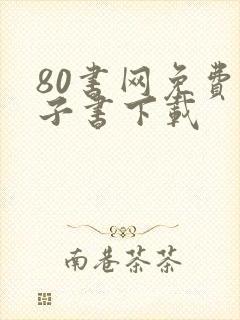 80书网免费
子书下载
南巷茶茶